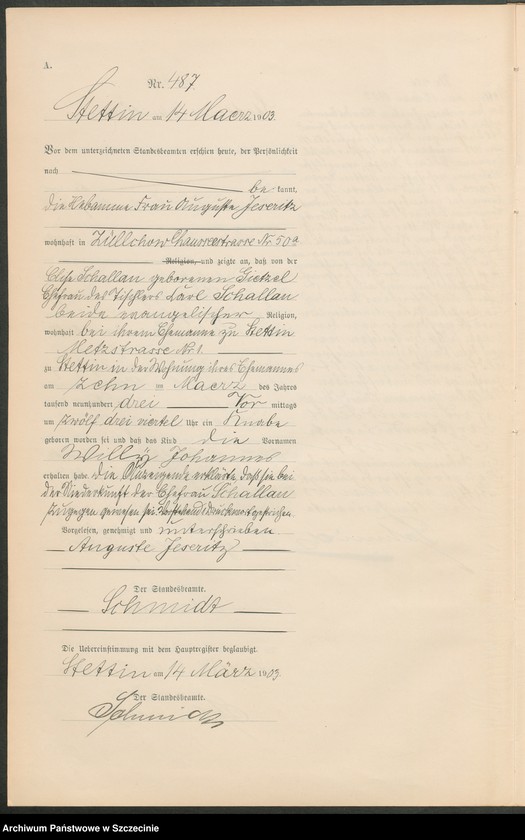 A.
Nr. 487
Stettin am 14 Maerz 1903.
Vor dem unterzeichneten Standesbeamten erschien heute, der Persönlichkeit
nach
be kannt,
die Hebamme Frau Auguste Jeseritz
wohnhaft in Züllchow Chausseestrasse Nr. 50a
Religion, und zeigte an, daß von der
Schallau geborenen
Ehefrau des Tischlers Karl Schallau
beide evangelischer Religion,
wohnhaft bei ihrem Ehemanne zu Stettin
Metzstrasse Nr 1.
zu Stettin in der Wohnung ihres Ehemannes
am zehn ten Maerz des Jahres
tausend neunhundert drei Vor mittags
um zwölf drei viertel Uhr ein Knabe
geboren worden sei und daß das Kind die Vornamen
Willy Johannes
erhalten habe. Die Anzeigende erklärte, daß sie bei
der Niederkunft der Ehefrau Schallau
zugegen gewesen sei. Vorstehend 1 Druckwort gestrichen.
Vorgelesen, genehmigt und unterschrieben
Auguste Jeseritz
Der Standesbeamte.
Schmidt
Die Uebereinstimmung mit dem Hauptregister beglaubigt.
Stettin am 14 März 1903
Der Standesbeamte.
Schmidt
Archiwum Państwowe w Szczecinie